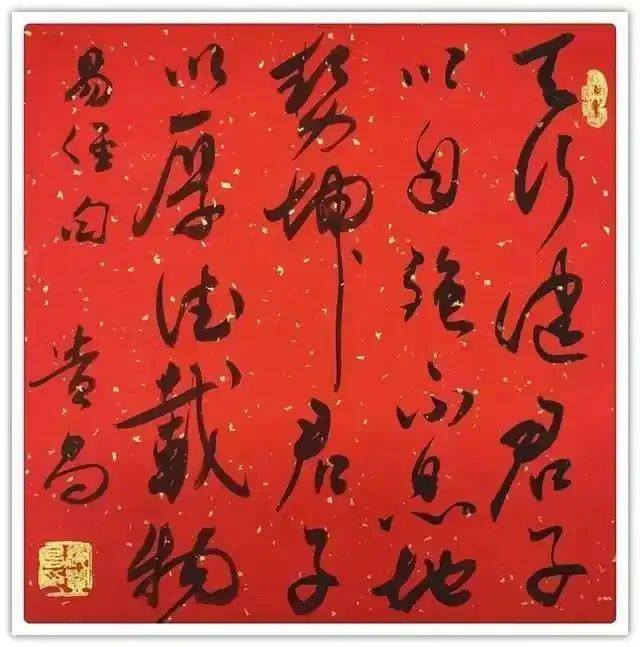 天行健君子
以自強不息地
勢坤君子
以厚德載物
易經句